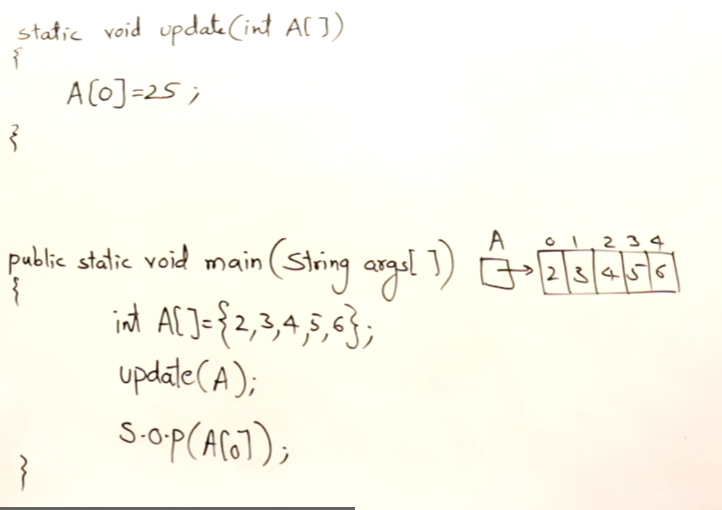 static void update(int A[])
{
A[0]=25;
}
public static void main(String args[])
{
int A[]={2,3,4,5,6};
update(A);
S.o.p(A[0]);
}
A
0 1 2 3 4
2 3 4 5 6